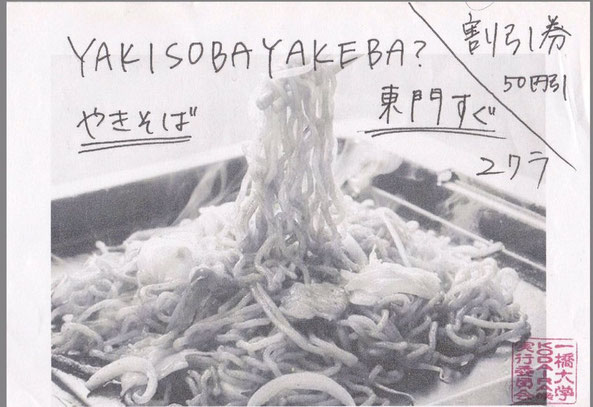 YAKISOBAYAKEBA?
割引券
50円引
やきそば
東門すぐ
2クラ
一橋大学
KODAIRA祭
実行委員会